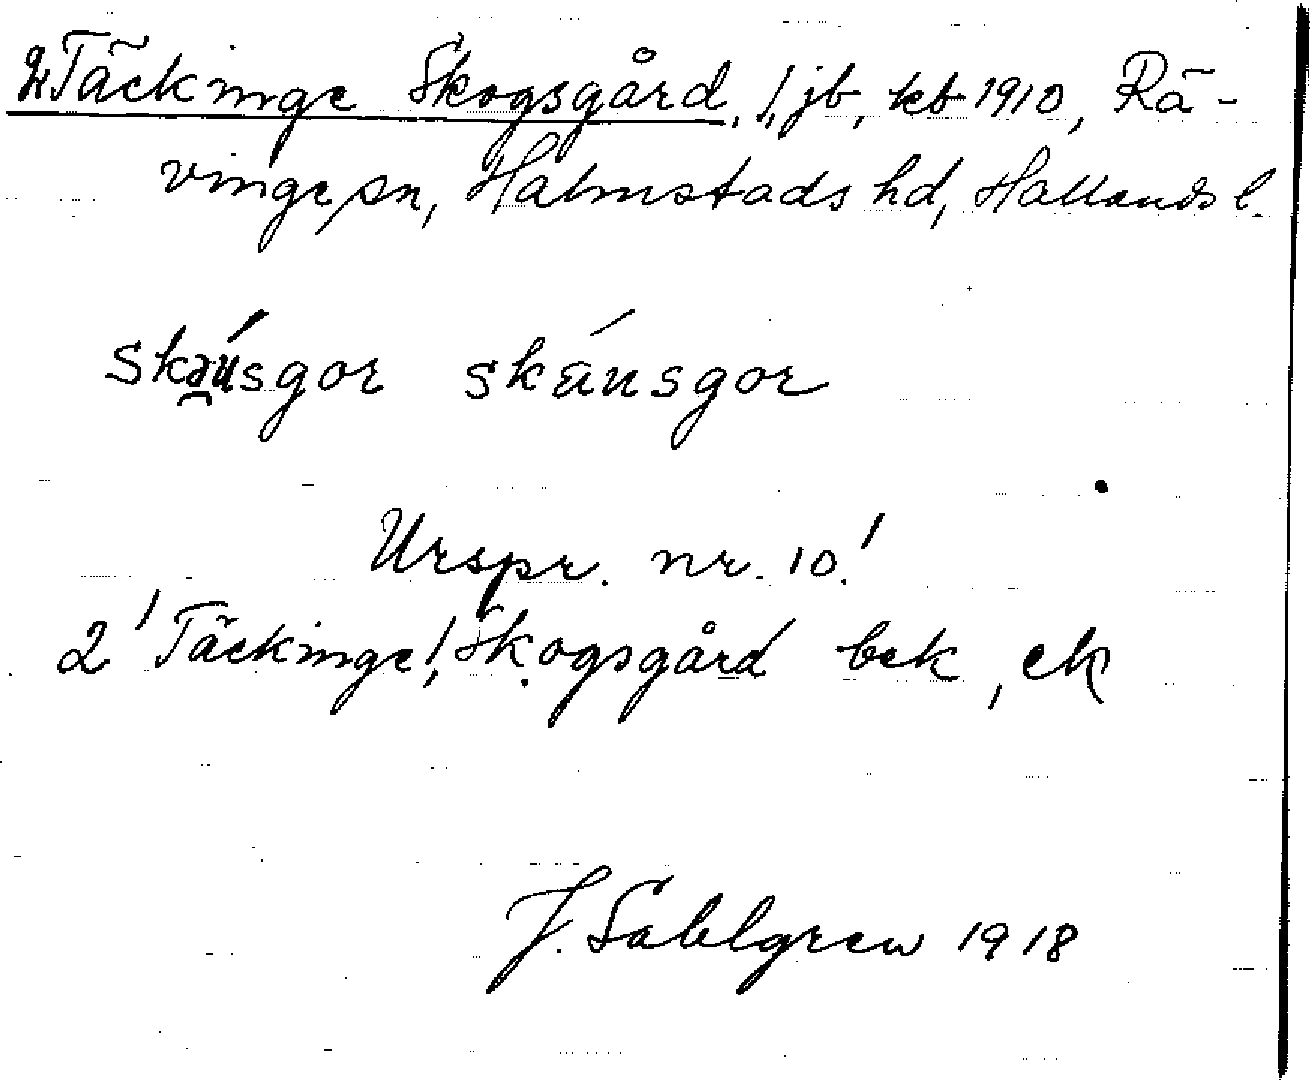 2 Täckinge Skogsgård, !, jb, kb 1910, Rä-
vinge sn, Halmstads hd, Hallands l.
skǝúsgor skáusgor
Urspr. nr. 10!
2 ! Täckinge !, Skogsgård bek, ek
J. Sahlgren 1918